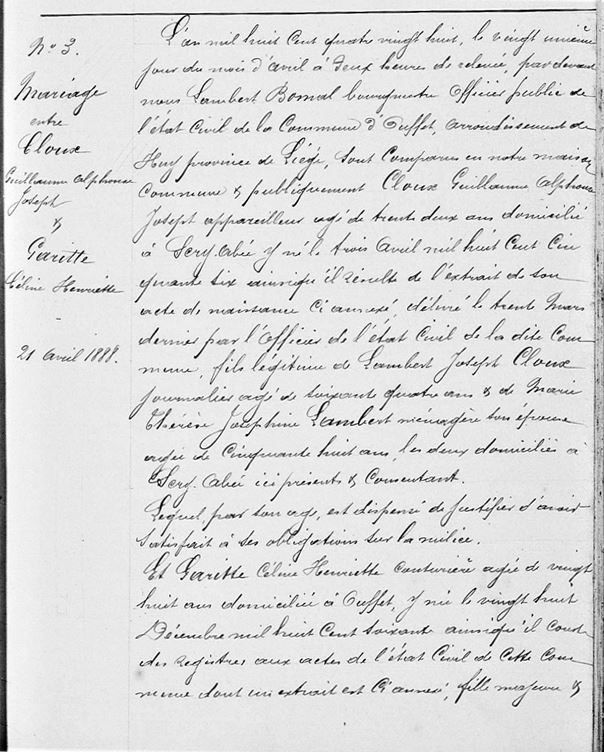 N° 3.
Mariage
entre
Cloux
Guillaume Alphonse
Joseph
&
Gariette
Céline Henriette
21 avril 1888.
L'an mil huit Cent quatre vingt huit, le vingt unième
jour du mois d'avril à deux heures de relevée, par devant
nous Lambert Bomal bourgmestre Officier public de
l'état Civil de la Commune d'Ouffet, arrondissement de
Huy province de Liége, sont Comparus en notre maison
Commune & publiquement Cloux Guillaume Alphonse
Joseph appareilleur agé de trente deux ans domicilié
à Scry-Abée y né le trois avril mil huit Cent Cin
quante six ainsi qu'il résulte de l'extrait de son
acte de naissance Ci annexé, délivré le trente Mars
dernier par l'Officier de l'état Civil de la dite Com
mune, fils légitime de Lambert Joseph Cloux
journalier agé de soixante quatre ans & de Marie
Thérèse Josephine Lambert ménagère son épouse
agée de Cinquante huit ans, les deux domiciliés à
Scry-Abée ici présents & Consentant.
Lequel, par son age, est dispensé de justifier d'avoir
satisfait à ses obligations sur la milice.
Et Gariette Céline Henriette couturière agée de vingt
huit ans domiciliée à Ouffet, y née le vingt huit
Décembre mil huit Cent soixante ainsi qu'il const
des registres aux actes de l'état Civil de Cette Com
mune dont un extrait est Ci annexé, fille majeure &